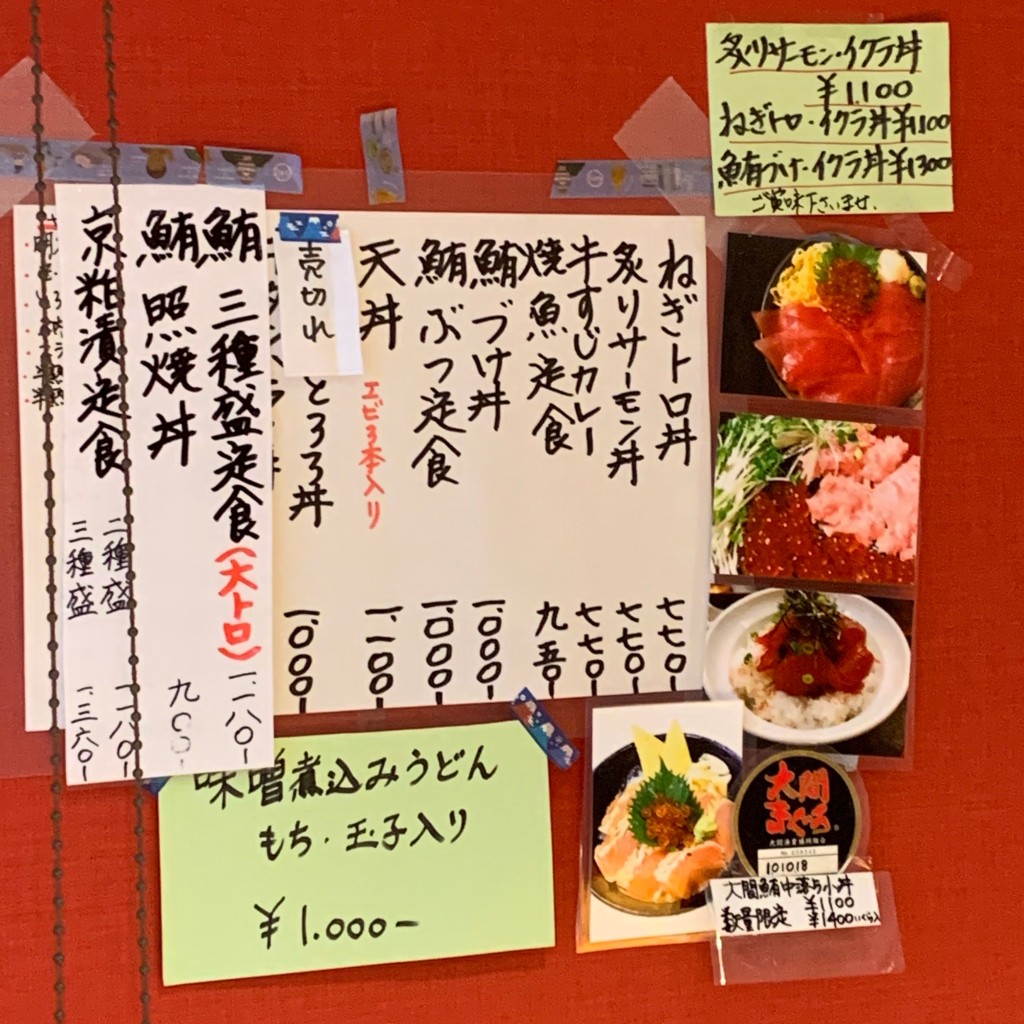 炙りサーモン・イクラ丼
¥1.100
ねぎトロ・イクラ丼¥1.100
鮪づけ・イクラ丼¥1300
ご賞味下さいませ.
ねぎトロ丼 七七〇-
炙りサーモン丼 七七〇-
牛すじカレー 七七〇-
焼魚定食 九五〇-
鮪づけ丼 一.〇〇〇-
鮪ぶつ定食 一.〇〇〇-
天丼 エビ3本入り 一.一〇〇-
売切れ
とろろ丼 一.〇〇〇-
鮪 三種盛定食(大トロ) 一.一八〇-
鮪 照焼丼 九〇〇-
京粕漬定食
二種盛 一.一八〇-
三種盛 一.三六〇-
味噌煮込みうどん
もち・玉子入り
¥1.000-
大間
まぐろ
大間漁業協同組合
101018
大間鮪中落ち小丼
¥1100
数量限定 ¥1400いくら入